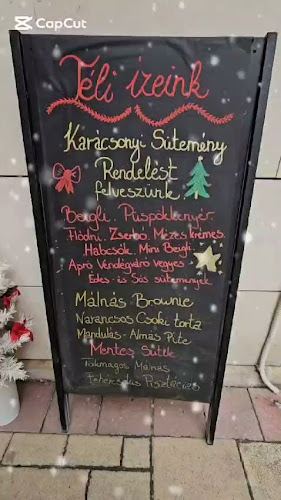 CapCut
Téli ízeink
Karácsonyi Sütemény
Rendelést
felveszünk
Beigli. Püspökkenyér.
Flódni. Zserbó. Mézes krémes.
Habcsók. Mini Beigli.
Apró Vendégváró vegyes
Édes - és Sós sütemények
Málnás Brownie
Narancsos Csoki torta
Mandulás - Almás Pite
Mentes Sütik
Tökmagos Málnás
Fehércsokis Pisztáciás